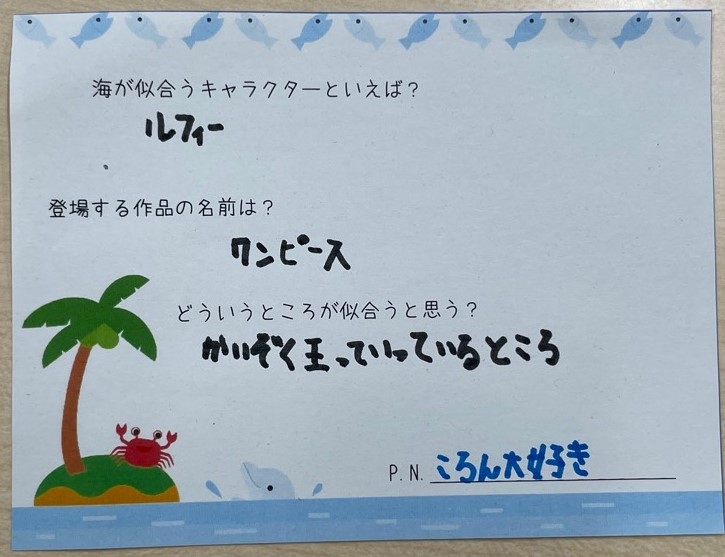 海が似合うキャラクターといえば？
ルフィー
登場する作品の名前は？
ワンピース
どういうところが似合うと思う？
かいぞく王っていっているところ
P.N. ころん大好き